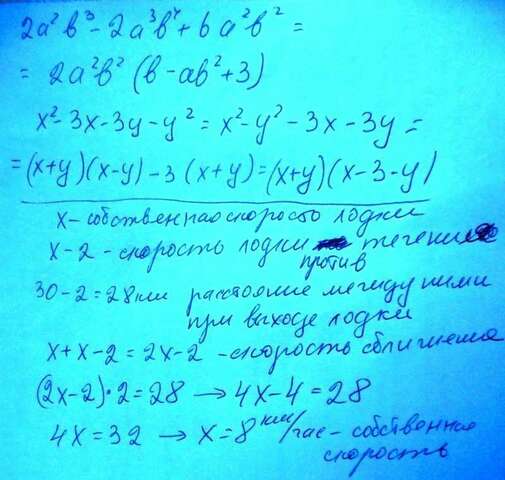 2a²b³ - 2a³b⁴ + 6a²b² =
= 2a²b² (b - ab² + 3)
x² - 3x - 3y - y² = x² - y² - 3x - 3y =
= (x+y)(x-y) - 3(x+y) = (x+y)(x-3-y)
x - собственная скорость лодки
x - 2 - скорость лодки против течения
30 - 2 = 28 км расстояние между ними
при выходе лодки
x + x - 2 = 2x - 2 - скорость сближения
(2x-2)·2 = 28 → 4x - 4 = 28
4x = 32 → x = 8 км/час - собственная
скорость